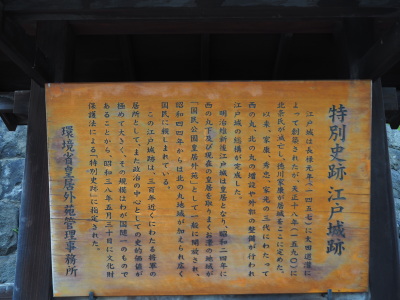 特別史跡 江戸城跡
江戸城は長禄元年(一四五七)に太田道灌に
よって創築されたが、天正十八年(一五九〇)
北条氏が滅亡し、徳川家康が居城をここに定めた。
以来、家康、秀忠、家光の三代にわたって
西の丸、北の丸の増設や外郭の整備が行われ
江戸城の結構が完成した。
明治維新後江戸城は皇居となり、昭和二四年に
西の丸下及び現在の皇居を取りまくお濠の地域が
「国民公園皇居外苑」として一般に開放され、
昭和四四年からは北の丸地域が加えられ広く
国民に親しまれている。
この江戸城跡は三百年近くにわたる将軍の
居所として、また政治の中心としての史的価値が
極めて大きく、その規模はわが国随一のもので
あることから、昭和三八年五月三十日に文化財
保護法による「特別史跡」に指定された。
環境省皇居外苑管理事務所